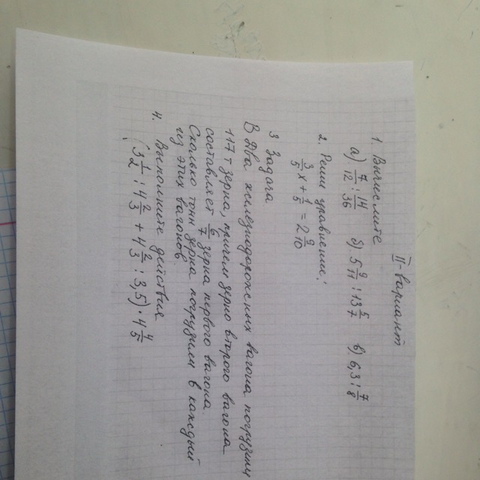 II-вариант
1. Вычислите
а) 7/12 : 14/36 б) 5 9/11 : 13 5/7 в) 6,3 : 7/8
2. Реши уравнение:
3/5 x + 1/5 = 2 9/10
3 Задача
В два железнодорожных вагона погрузили
117 т зерна, причем зерно второго вагона
составляет 6/7 зерна первого вагона.
Сколько тонн зерна погрузили в каждый
из этих вагонов
4. Выполните действия
(3 1/2 : 4 2/3 + 4 2/3 : 3,5) · 4 4/5